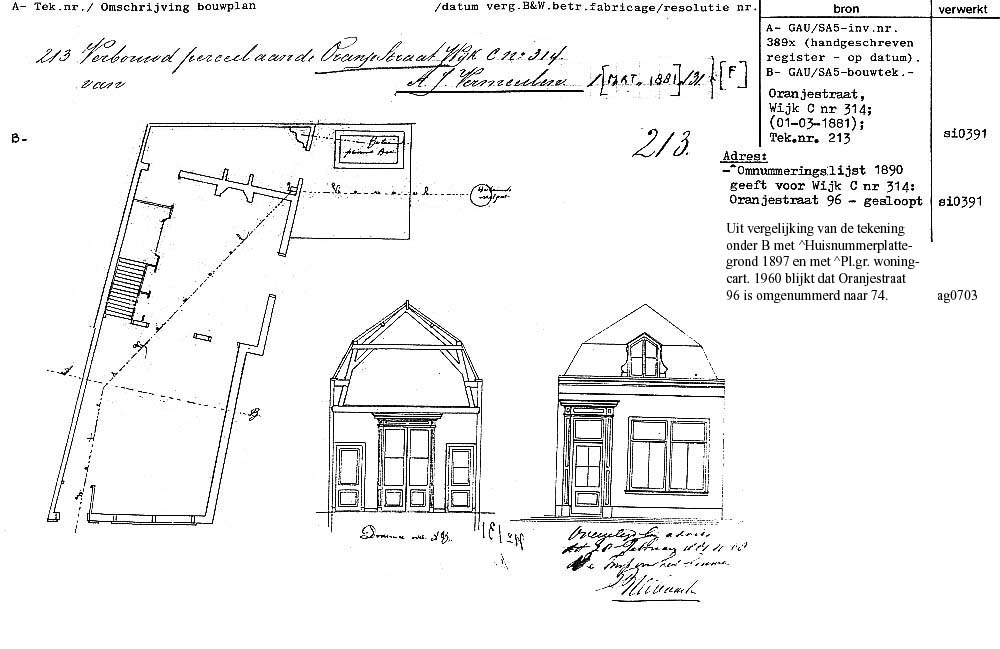 A- Tek.nr./ Omschrijving bouwplan /datum verg.B&W.betr.fabricage/resolutie nr.
bron verwerkt
213 Verbouwd perceel aan de Oranjestraat Wijk C no 314.
van A. J. Vermeulen 1 [MRT. 1881] /31 [F]
A- GAU/SA5-inv.nr.
389x (handgeschreven
register - op datum).
B- GAU/SA5-bouwtek.-
Oranjestraat,
Wijk C nr 314;
(01-03-1881);
Tek.nr. 213
si0391
B-
213.
Adres:
-^Omnummeringslijst 1890
geeft voor Wijk C nr 314:
Oranjestraat 96 - gesloopt si0391
Uit vergelijking van de tekening
onder B met ^Huisnummerplatte-
grond 1897 en met ^Pl.gr. woning-
cart. 1960 blijkt dat Oranjestraat
96 is omgenummerd naar 74. ag0703
A
B
Doorsnee